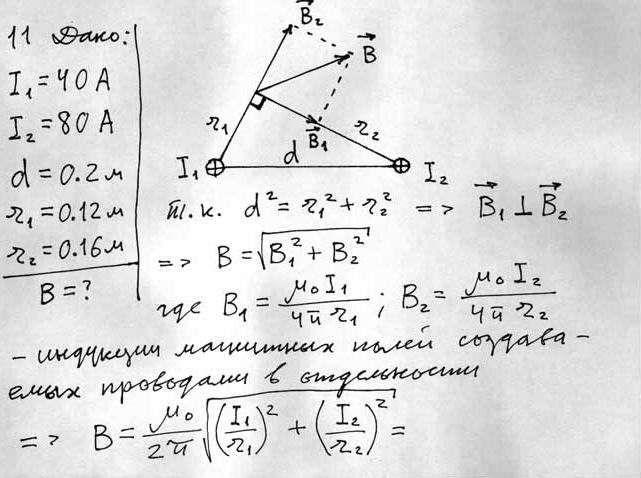 11 Дано:
I₁ = 40 А
I₂ = 80 А
d = 0.2 м
r₁ = 0.12 м
r₂ = 0.16 м
B = ?
B₂⃗
B⃗
r₁
B₁⃗
r₂
I₁
d
I₂
Т.к. d² = r₁² + r₂² => B₁⃗ ⊥ B₂⃗
=> B = √(B₁² + B₂²)
где B₁ = μ₀I₁/4πr₁ ; B₂ = μ₀I₂/4πr₂
– индукции магнитных полей создава–
емых проводами в отдельности
=> B = μ₀/2π √((I₁/r₁)² + (I₂/r₂)²) =